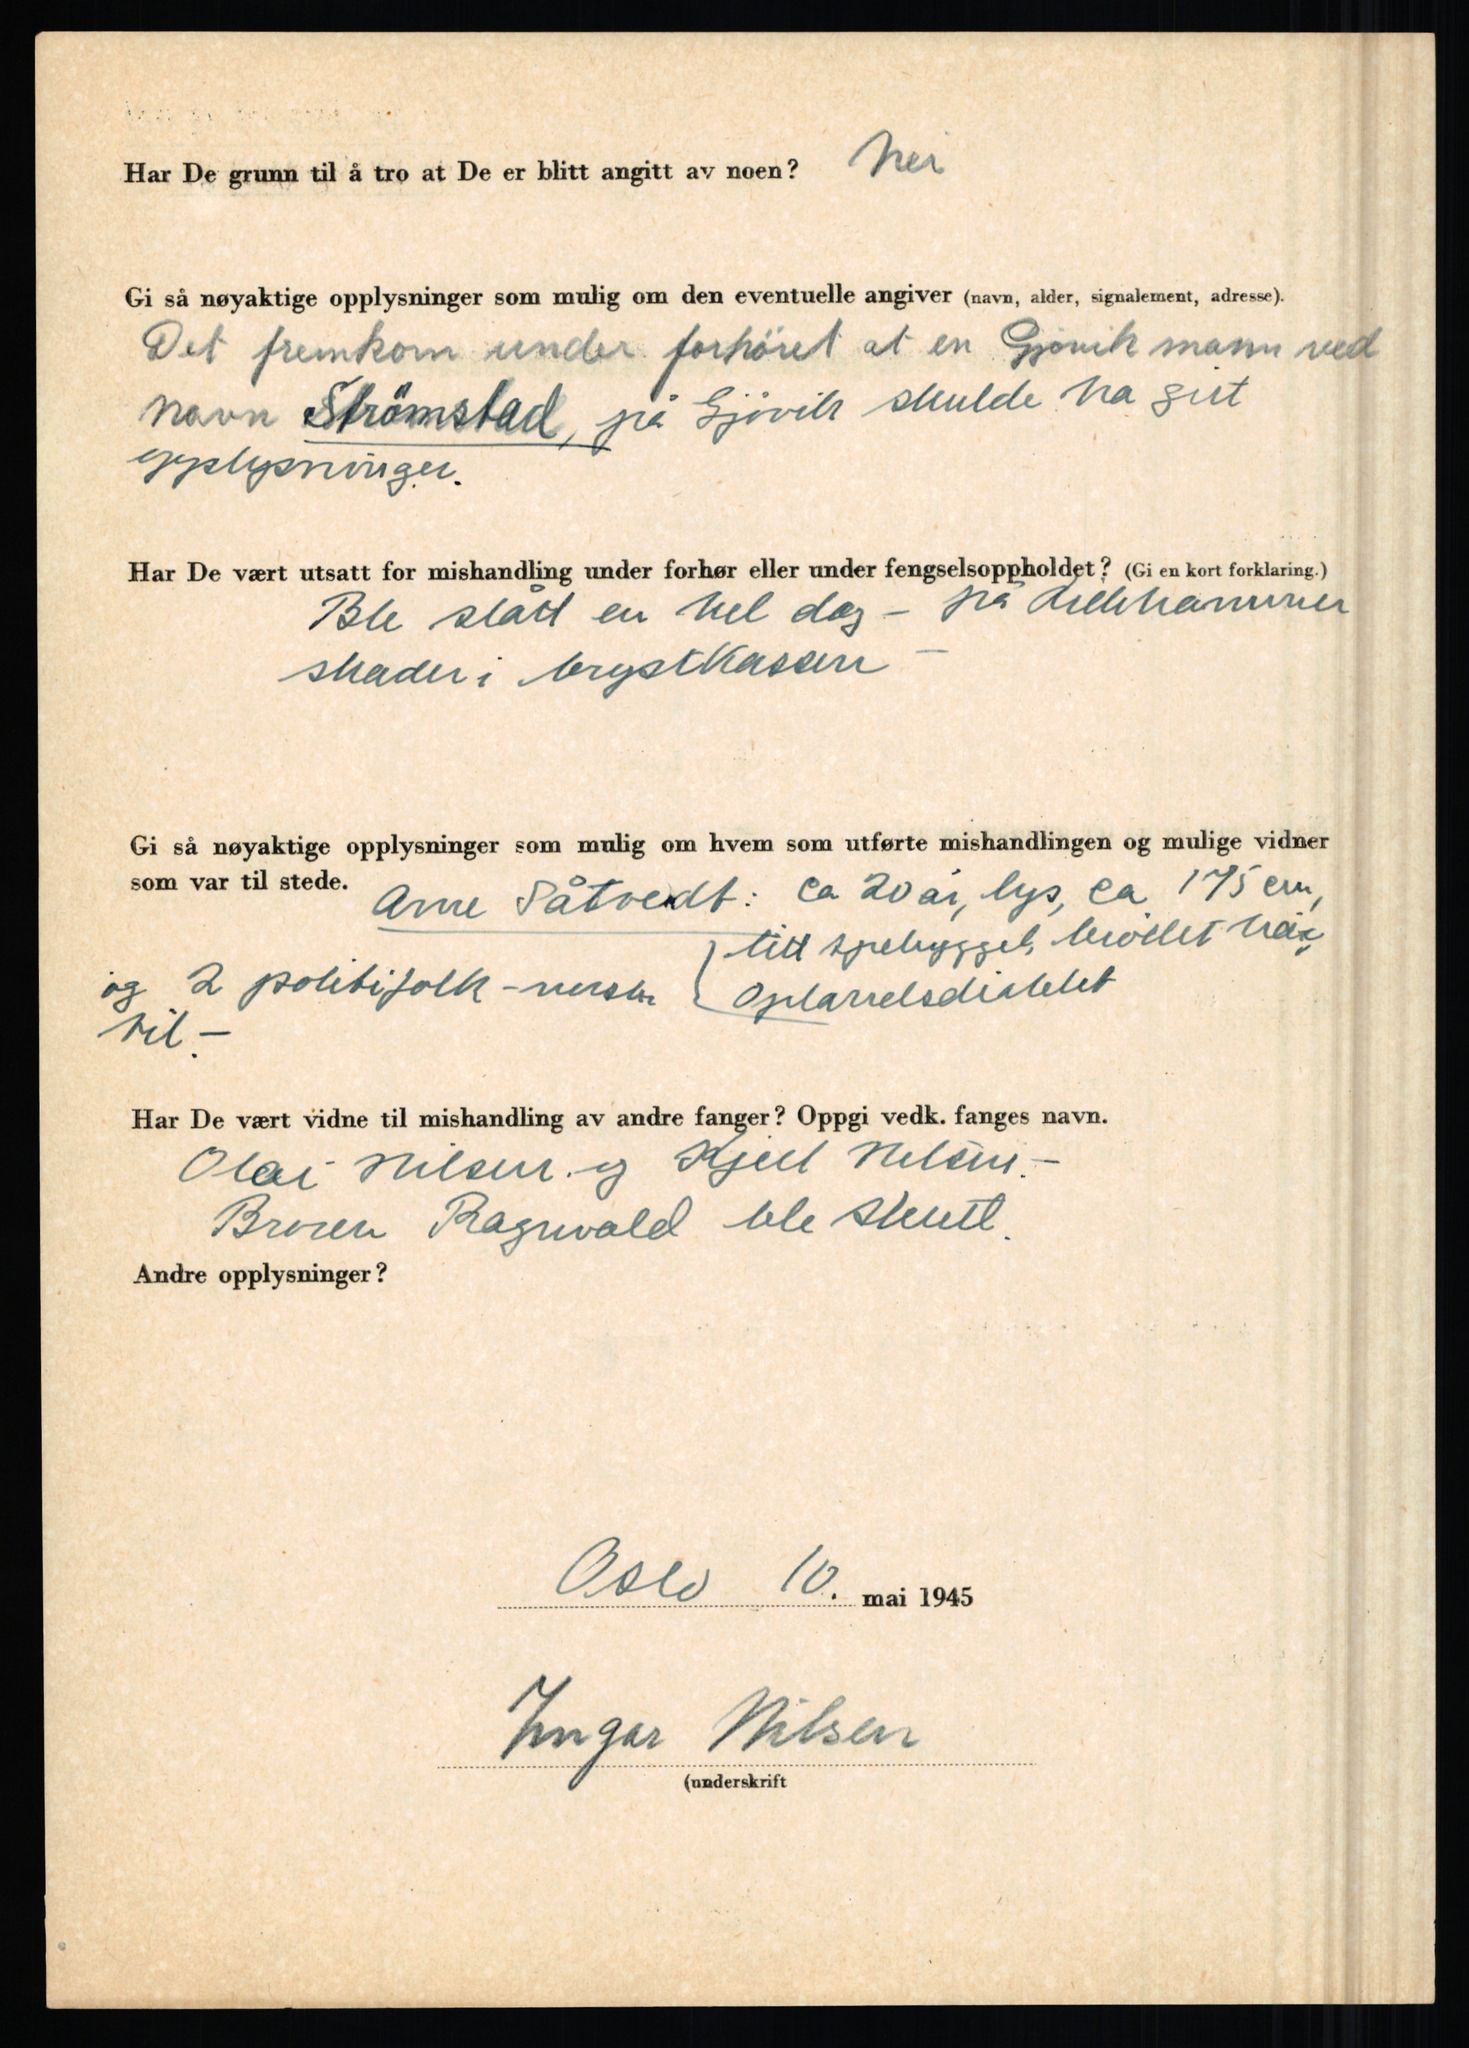 Har De grunn til å tro at De er blitt angitt av noen? Nei
Gi så nøyaktige opplysninger som mulig om den eventuelle angiver (navn, alder, signalement, adresse).
Det fremkom under forhöret at en Gjövik mann ved
navn Strömstad, på Gjövik skulde ha gitt
opplysninger.
Har De vært utsatt for mishandling under forhør eller under fengselsoppholdet? (Gi en kort forklaring.)
Ble slått en hel dag – på Lillehammer
skader i brystkassen –
Gi så nøyaktige opplysninger som mulig om hvem som utførte mishandlingen og mulige vidner
som var til stede. Arne Såtvedt: ca 20 år, lys, ca 175 cm,
litt spebygget, krøllet hår,
og 2 politifolk – norske Oplandsdialekt
til. –
Har De vært vidne til mishandling av andre fanger? Oppgi vedk. fanges navn.
Olai Nilsen og Kjell Nilsen. –
Broren Ragnvald ble skutt.
Andre opplysninger?
Oslo 10. mai 1945
Ingar Nilsen
(underskrift